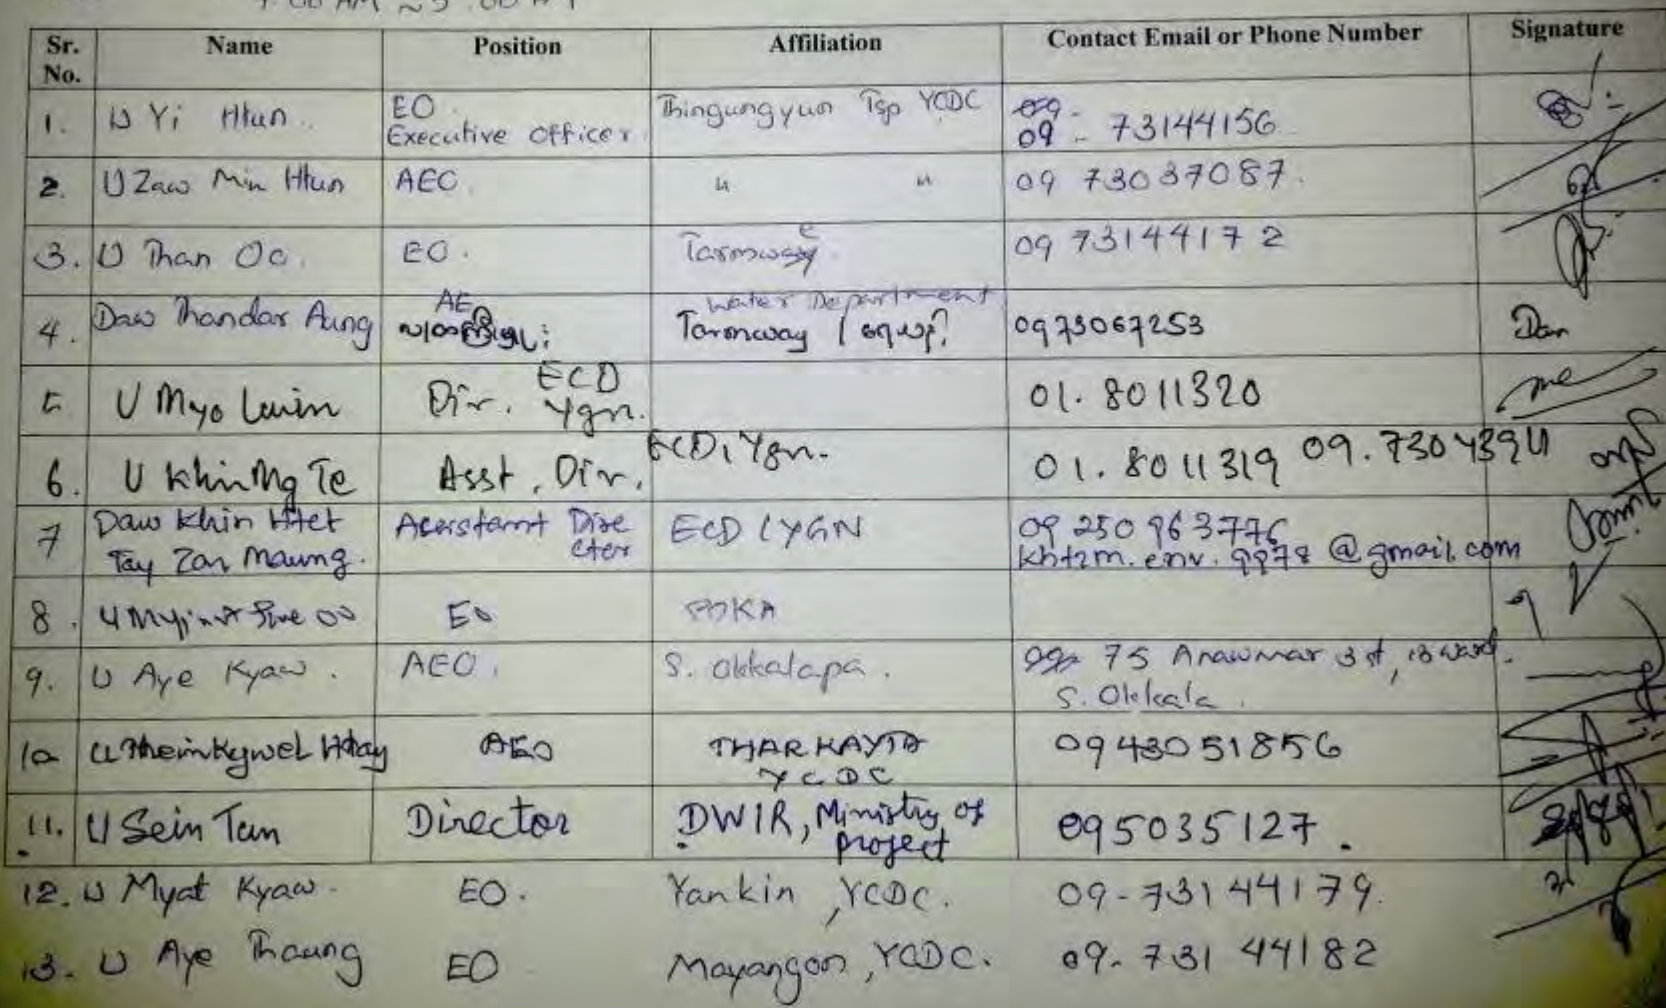 9:00 AM ~ 5:00 PM
Sr. No. Name Position Affiliation Contact Email or Phone Number Signature
1. U Yi Htun EO Executive Officer Thingungyun Tsp YCDC 09 - 73144156
2. U Zaw Min Htun AEO " " 09 73037087.
3. U Than Oo. EO. Tarmwe 09 73144172
4. Daw Thandar Aung AE Water Department Tarmway 0973067253 Dan
5 U Myo Lwin Dir. ECD Ygn. 01. 8011320
6. U Khin Mg Te Asst, Dir, ECD, Ygn. 01. 8011319
7 Daw Khin Htet Tay Zar Maung. Assistant Director ECD (YGN 09 250 963776
khtzm.env.9978@gmail.com
8. U Myint Swe Oo EO
9. U Aye Kyaw. AEO. S. Okkalapa. 75 Anawmar 3 st, 13 ward.
S. Okkala.
10 U Thein Kywel Htay AEO THARKAYTA YCDC 0943051856
11. U Sein Tun Director DWIR, Ministry of project 095035127.
12. U Myat Kyaw. EO. Yankin, YCDC. 09-73144179.
13. U Aye Thaung EO Mayangon, YCDC. 09-731 44182